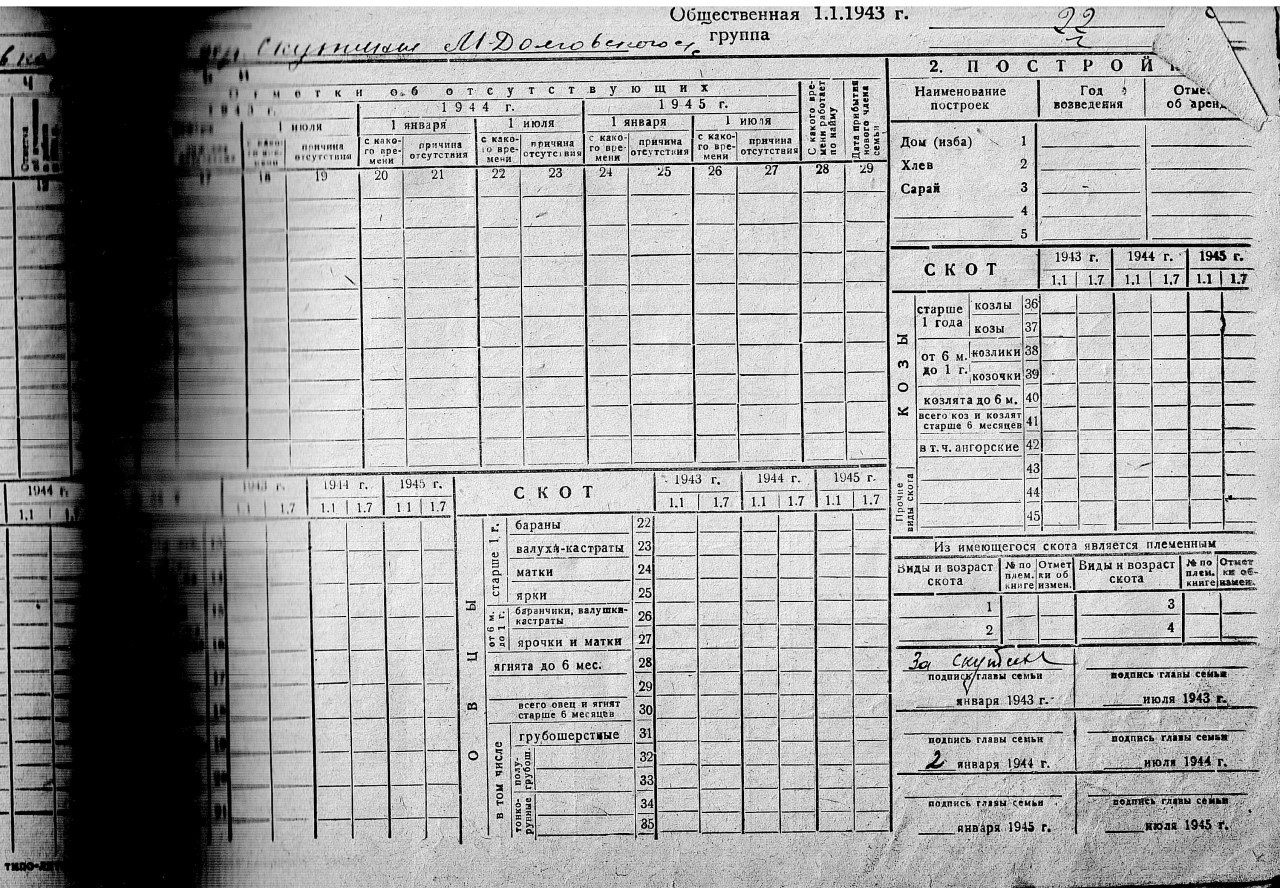 Общественная 1.1.1943 г.
группа
22
М Долговского
Отметки об отсутствующих
1943 г. 1944 г. 1945 г.
1 июли 1 января 1 июля 1 января 1 июля
причина отсутствия
с како-го вре-мени причина отсутствия
с како-го вре-мени причина отсутствия
с како-го вре-мени причина отсутствия
с како-го вре-мени причина отсутствия
С какого вре-мени работает по найму
Дата прибытия нового члена семьи
17 18 19 20 21 22 23 24 25 26 27 28 29
2. ПОСТРОЙ
Наименование построек
Год возведения
Отме об аренд
Дом (изба) 1
Хлев 2
Сарай 3
4
5
СКОТ
1943 г. 1944 г. 1945 г.
1.1 1.7 1.1 1.7 1.1 1.7
КОЗЫ
старше 1 года
козлы 36
козы 37
от 6 м. до 1 г.
козлики 38
козочки 39
козлята до 6 м. 40
всего коз и козлят старше 6 месяцев 41
в т.ч. ангорские 42
Прочие виды скота
43
44
45
Из имеющегося скота является племенным
Виды и возраст скота
№ по плем. книге
Отмет ки об измен.
Виды и возраст скота
№ по плем. книге
Отмет ки об измен.
1 3
2 4
За Скутин
подпись главы семьи подпись главы семьи
января 1943 г. июля 1943 г.
подпись главы семьи подпись главы семьи
2 января 1944 г. июля 1944 г.
подпись главы семьи подпись главы семьи
января 1945 г. июля 1945 г.
1944 г.
1.1
1943 г. 1944 г. 1945 г.
1.7 1.1 1.7 1.1 1.7
СКОТ
1943 г. 1944 г. 1945 г.
1.1 1.7 1.1 1.7 1.1 1.7
ОВЦЫ
старше 1 г.
бараны 22
валухи-кастраты 23
матки 24
ярки 25
от 6 м. до 1 г.
баранчики, валушки-кастраты 26
ярочки и матки 27
ягнята до 6 мес. 28
29
всего овец и ягнят старше 6 месяцев 30
в том числе
грубошерстные 31
полу-грубош.
32
33
тонко-рунные
34
35